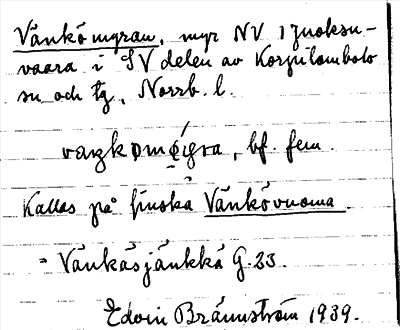 Vånkömyran, myr NV i Juoksu-
vaara i SV delen av Korpilombolo
sn och tg, Norrb. l.
bf. fem.
Kallas på finska Vånkövuoma.
= Vånkäsjänkkä G.23.
Edvin Brännström 1939.